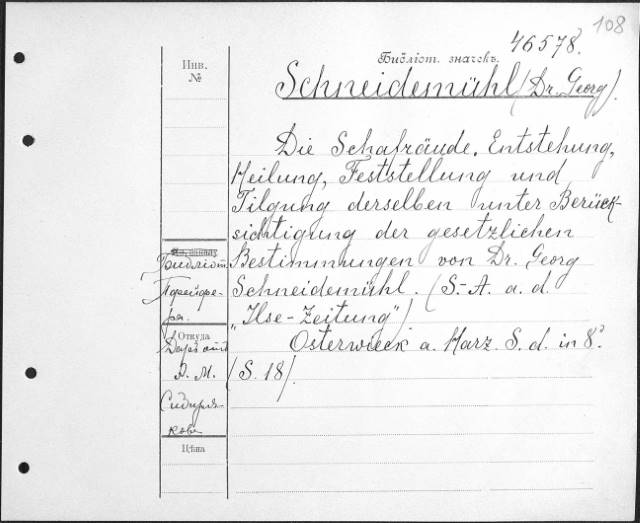 108
46578
Инв.
№
Библіот. значекъ.
Schneidemühl (Dr. Georg).
Die Schafräude. Entstehung,
Heilung, Feststellung und
Tilgung derselben unter Berück-
sichtigung der gesetzlichen
Bestimmungen von Dr. Georg
Schneidemühl. (S.-A. a. d.
„Ilse-Zeitung")
Osterwieck a. Harz. S. d. in 8°.
(S. 18).
Библіот.
Откуда
А. М.
Сибиря-
кова
Цѣна